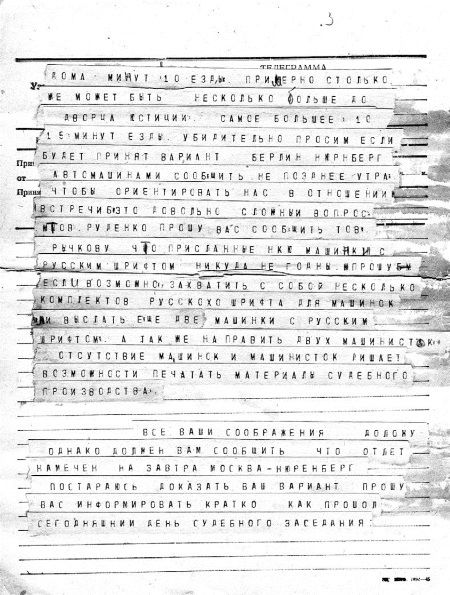 3
ТЕЛЕГРАММА
ДОМА МИНУТ 10 ЕЗДЫ. ПРИМЕРНО СТОЛЬКО
ЖЕ МОЖЕТ БЫТЬ НЕСКОЛЬКО БОЛЬШЕ ДО
ДВОРЦА ЮСТИЦИИ. САМОЕ БОЛЬШЕЕ 10
15 МИНУТ ЕЗДЫ. УБИДИТЕЛЬНО ПРОСИМ ЕСЛИ
БУДЕТ ПРИНЯТ ВАРИАНТ БЕРЛИН НЮРНБЕРГ
АВТОМАШИНАМИ СООБЩИТЬ НЕ ПОЗДНЕЕ УТРА
ЧТОБЫ ОРИЕНТИРОВАТЬ НАС В ОТНОШЕНИИ
ВСТРЕЧИ ЭТО ДОВОЛЬНО СЛОЖНЫЙ ВОПРОС
РУДЕНКО ПРОШУ ВАС СООБЩИТЬ ТОВ
РЫЧКОВУ ЧТО ПРИСЛАННЫЕ НКЮ МАШИНКИ С
РУССКИМ ШРИФТОМ НИКУДА НЕ ГОДНЫ. ПРОШУ
ЕСЛИ ВОЗМОЖНО ЗАХВАТИТЬ С СОБОЙ НЕСКОЛЬКО
КОМПЛЕКТОВ РУССКОХО ШРИФТА ДЛЯ МАШИНОК
ИЛИ ВЫСЛАТЬ ЕЩЕ ДВЕ МАШИНКИ С РУССКИМ
ШРИФТОМ. А ТАК ЖЕ НАПРАВИТЬ ДВУХ МАШИНИСТОК
ОТСУТСТВИЕ МАШИНОК И МАШИНИСТОК ЛИШАЕТ
ВОЗМОЖНОСТИ ПЕЧАТАТЬ МАТЕРИАЛЫ СУДЕБНОГО
ПРОИЗВОДСТВА.
ВСЕ ВАШИ СООБРАЖЕНИЯ ДОЛОЖУ
ОДНАКО ДОЛЖЕН ВАМ СООБЩИТЬ ЧТО ОТЛЕТ
НАМЕЧЕН НА ЗАВТРА МОСКВА-НЮРЕНБЕРГ
ПОСТАРАЮСЬ ДОКАЗАТЬ ВАШ ВАРИАНТ ПРОШУ
ВАС ИНФОРМИРОВАТЬ КРАТКО КАК ПРОШОЛ
СЕГОДНЯШНИЙ ДЕНЬ СУДЕБНОГО ЗАСЕДАНИЯ: